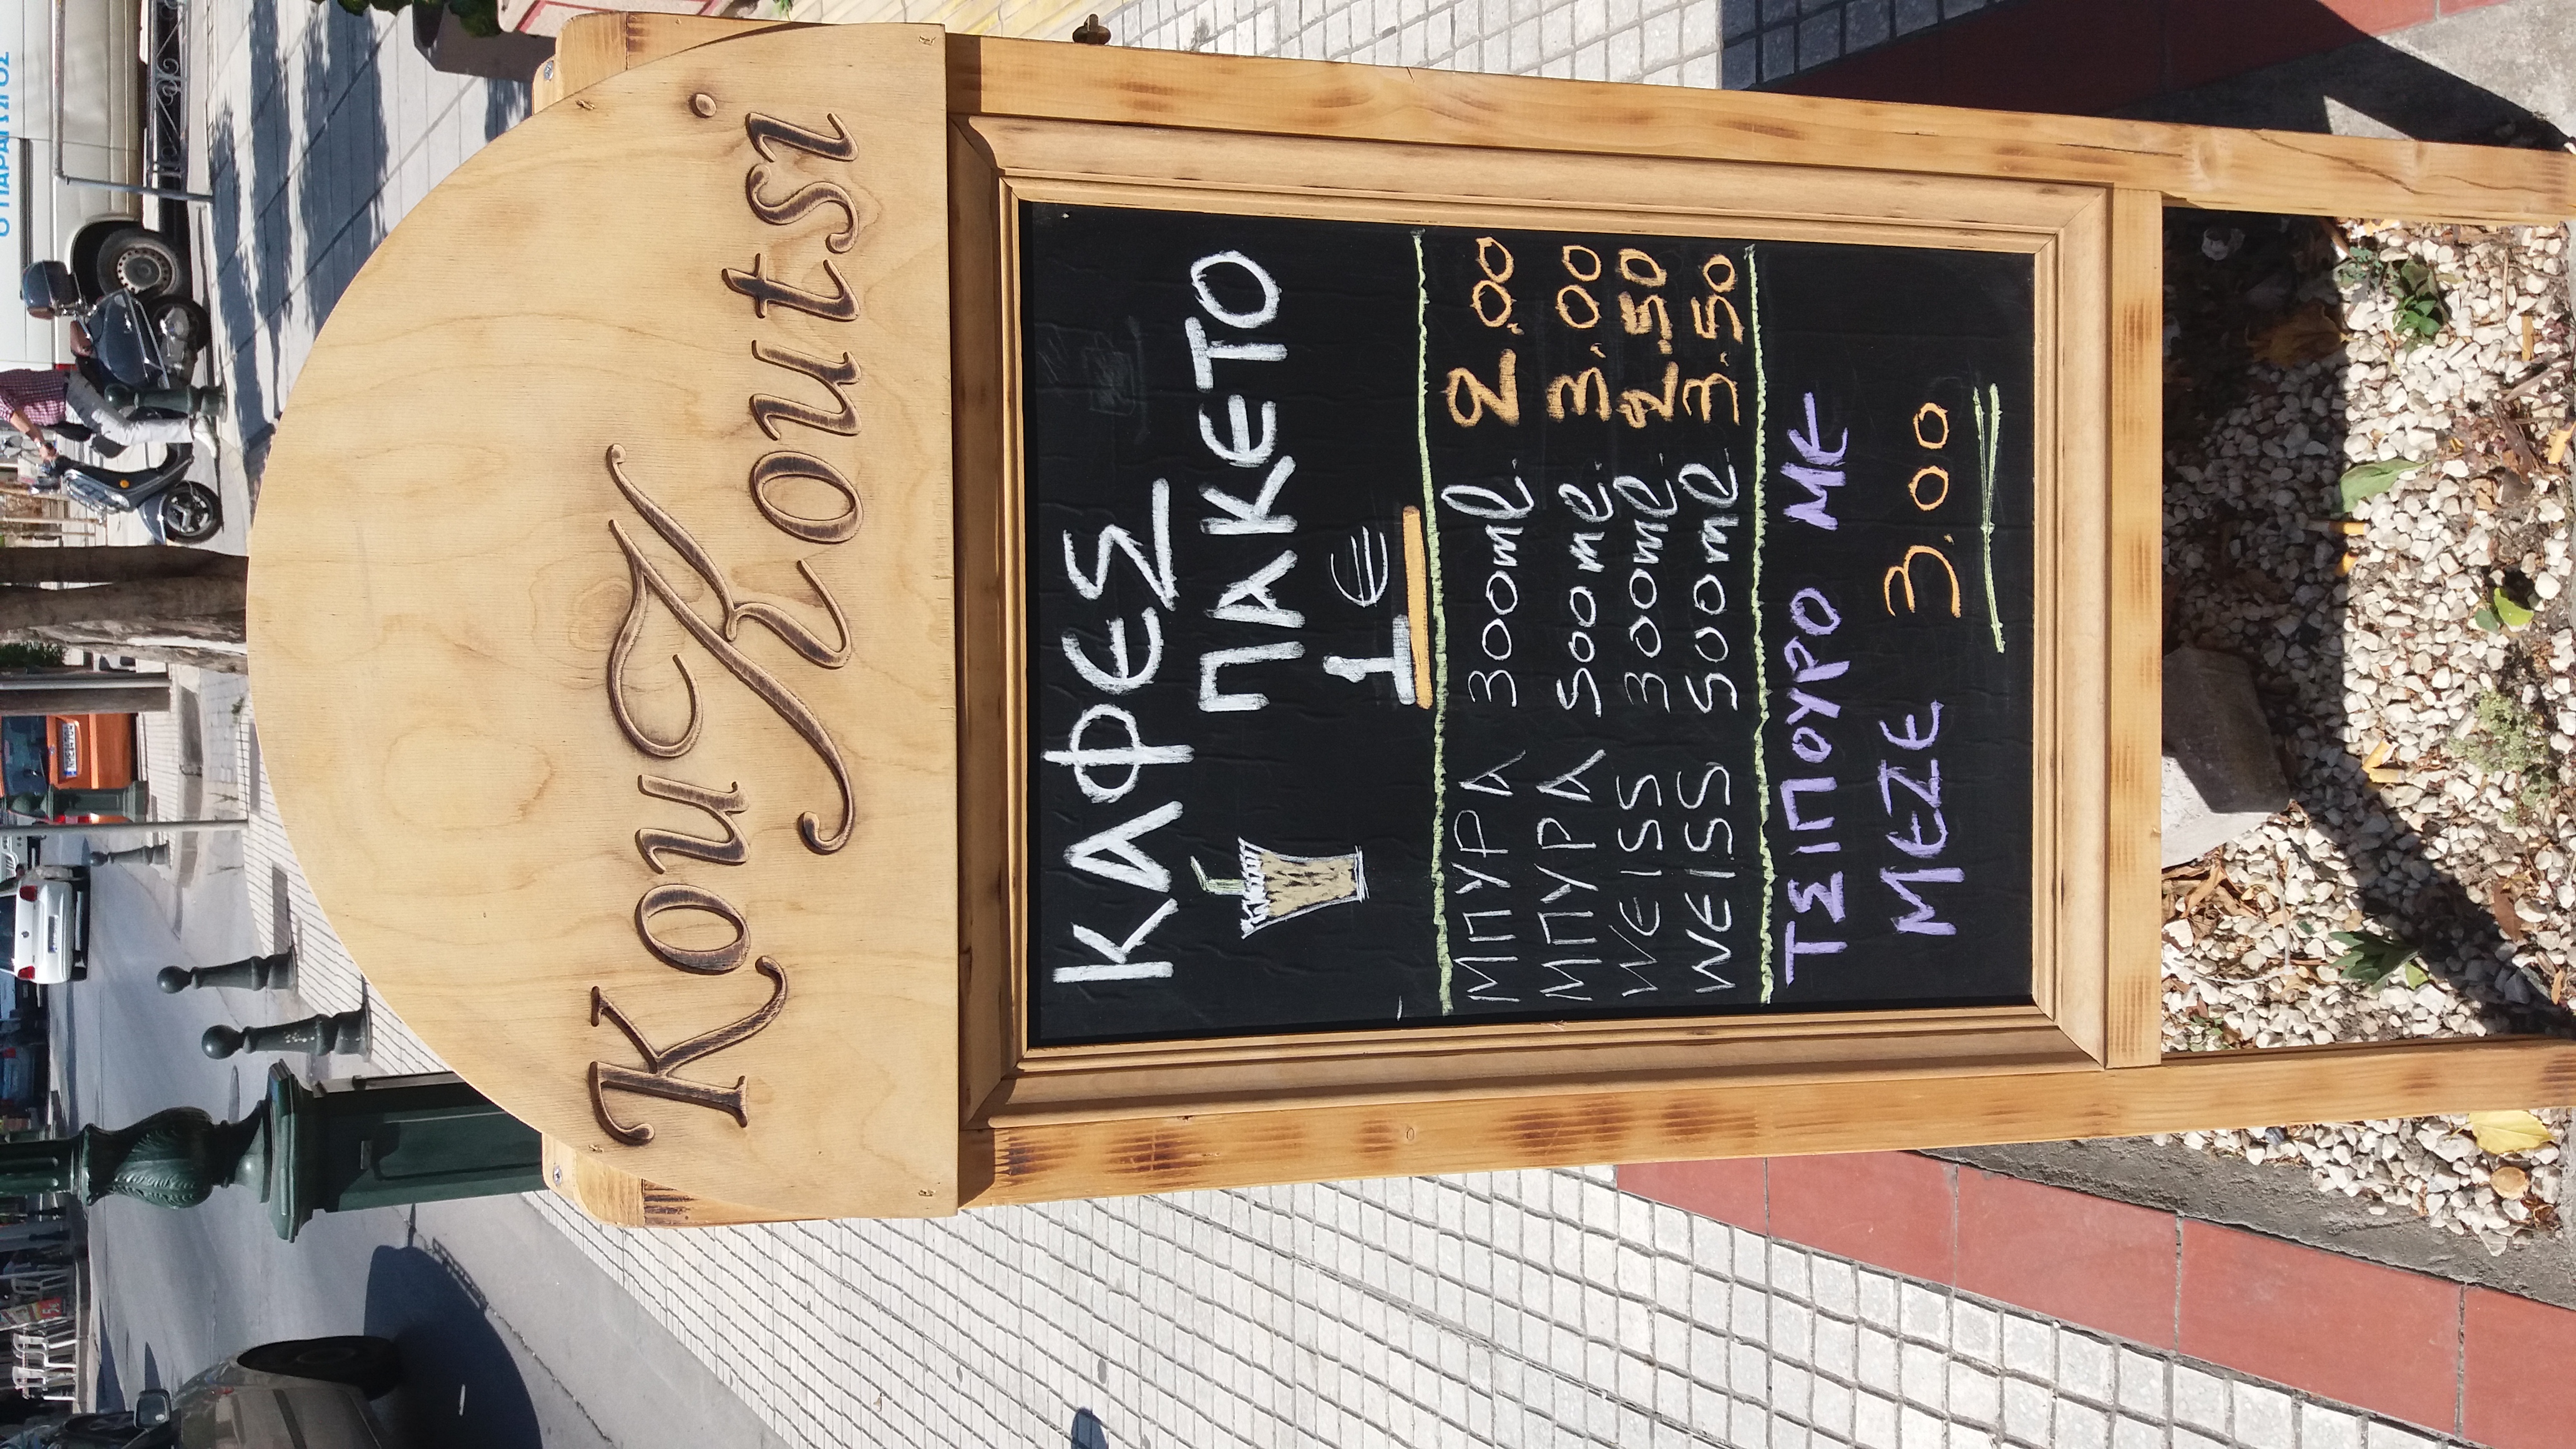 Kou
Koutsi
ΚΑΦΕΣ
ΠΑΚΕΤΟ
1€
ΜΠΥΡΑ 300ml 2.00
ΜΠΥΡΑ 500ml 3.00
WEISS 300ml 2.50
WEISS 500ml 3.50
ΤΣΙΠΟΥΡΟ ΜΕ
ΜΕΖΕ 3.00
Ο ΠΑΡΑΓΩΓΟΣ